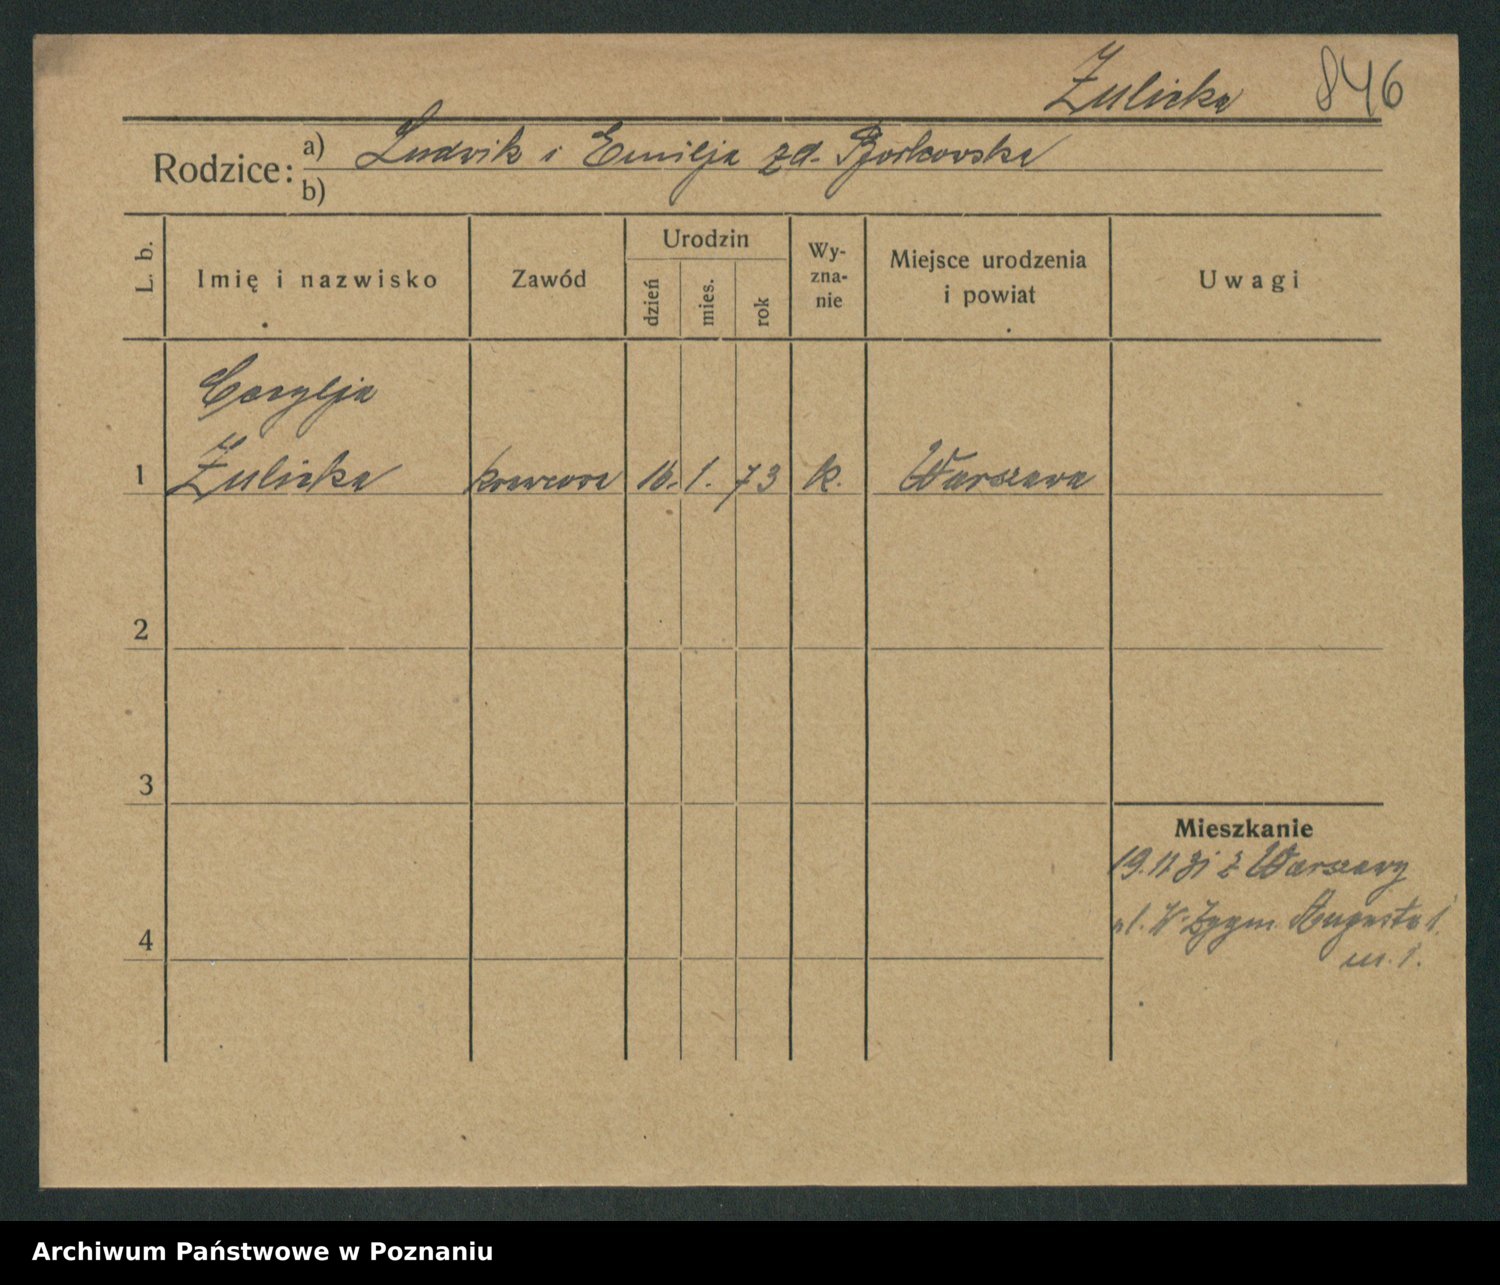 Zulicka 846
Rodzice: a) Ludwik i Emilja zd. Borkowska
b)
L. b. Imię i nazwisko Zawód Urodzin dzień mies. rok Wy-zna-nie Miejsce urodzenia i powiat Uwagi
Cecylja
1 Zulicka krawcowa 16. 1. 73 k. Warszawa
2
3
Mieszkanie
19. 11 31 z Warszawy
4 ul. Zygm. Augusta 1.
m. 1.
Archiwum Państwowe w Poznaniu